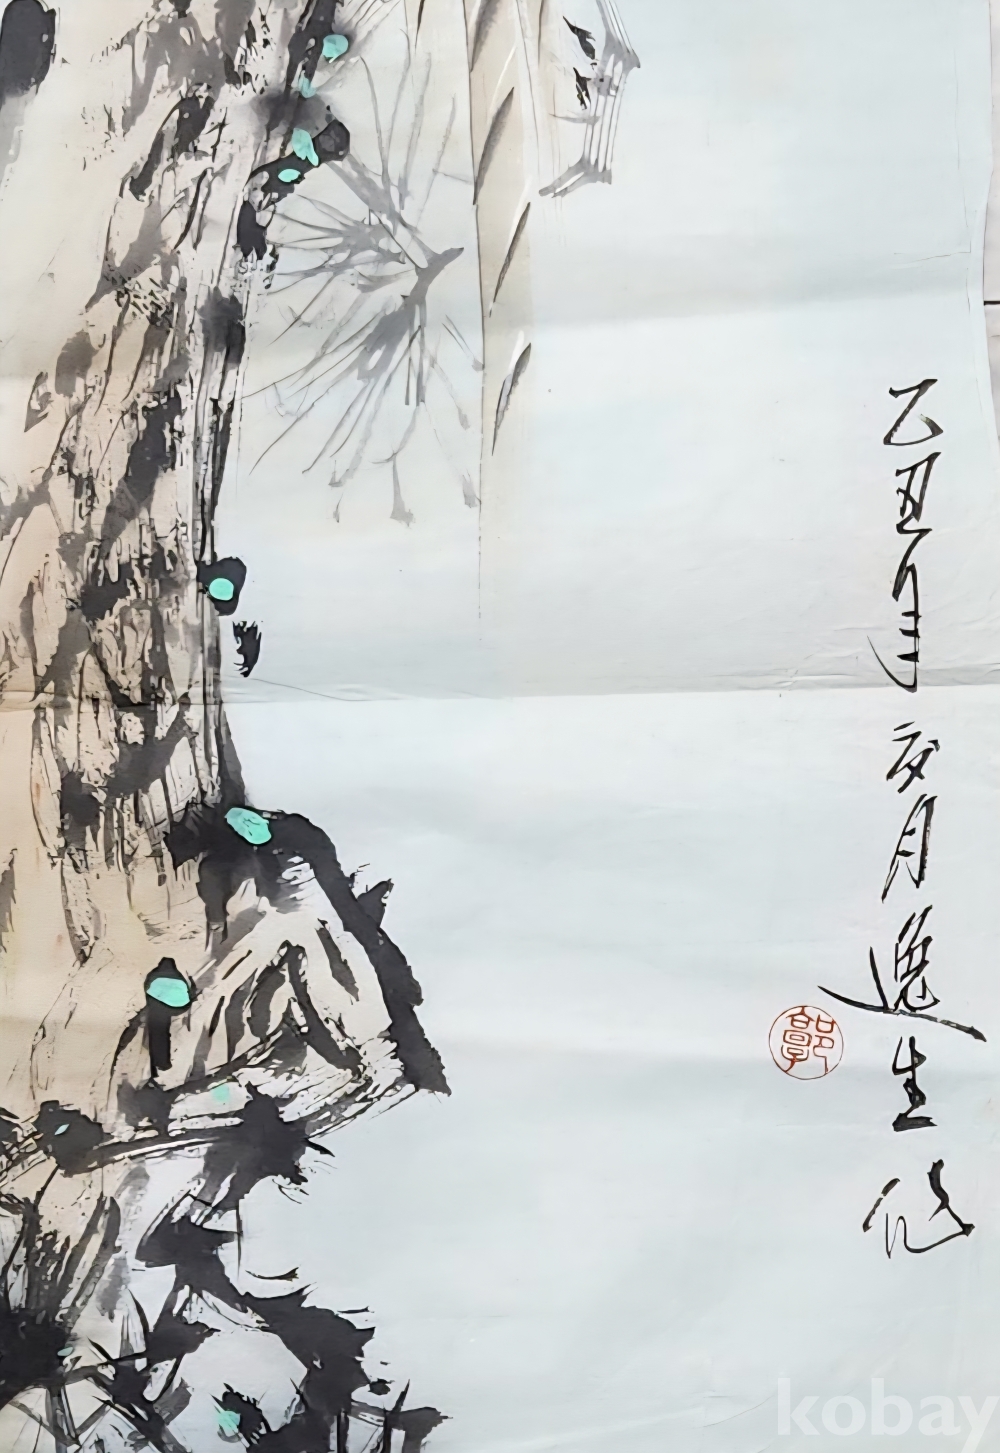 乙丑年夏月逸生作
郭
kobay